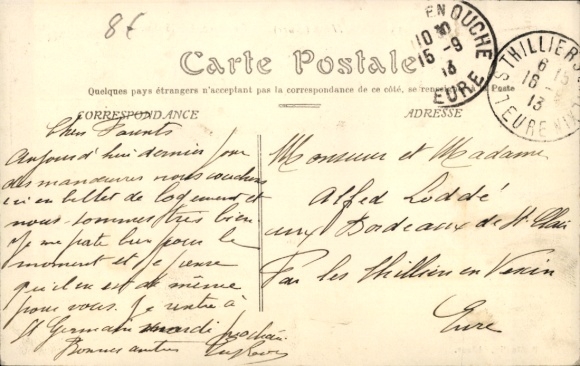 8€
Carte Postale
Quelques pays étrangers n'acceptant pas la correspondance de ce côté, se renseigner à la Poste
CORRESPONDANCE
ADRESSE
EN OUCHE
10 30
15 - 9
13
EURE
THILLIERS
6 15
16 -
13
EURE
Chers Parents
Aujourd'hui dernier jour
des manœuvres nous couchons
ici en billet de logement et
nous sommes très bien
Je me
porte bien pour le
moment et je pense
qu'il en est de même
pour vous. Je rentre à
St Germain mardi prochain
Bonnes
Monsieur et Madame
Alfed Loddé
aux Bordeaux de St Clair
Par les Thilliers en Vexin
Eure